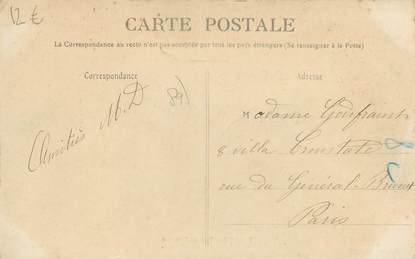 12 €
CARTE POSTALE
La Correspondance au recto n'est pas acceptée par tous les pays étrangers (Se renseigner à la Poste)
Correspondance
Adresse
Amitiés M. D
84)
Madame
8 villa
rue du Général-Brunet
Paris